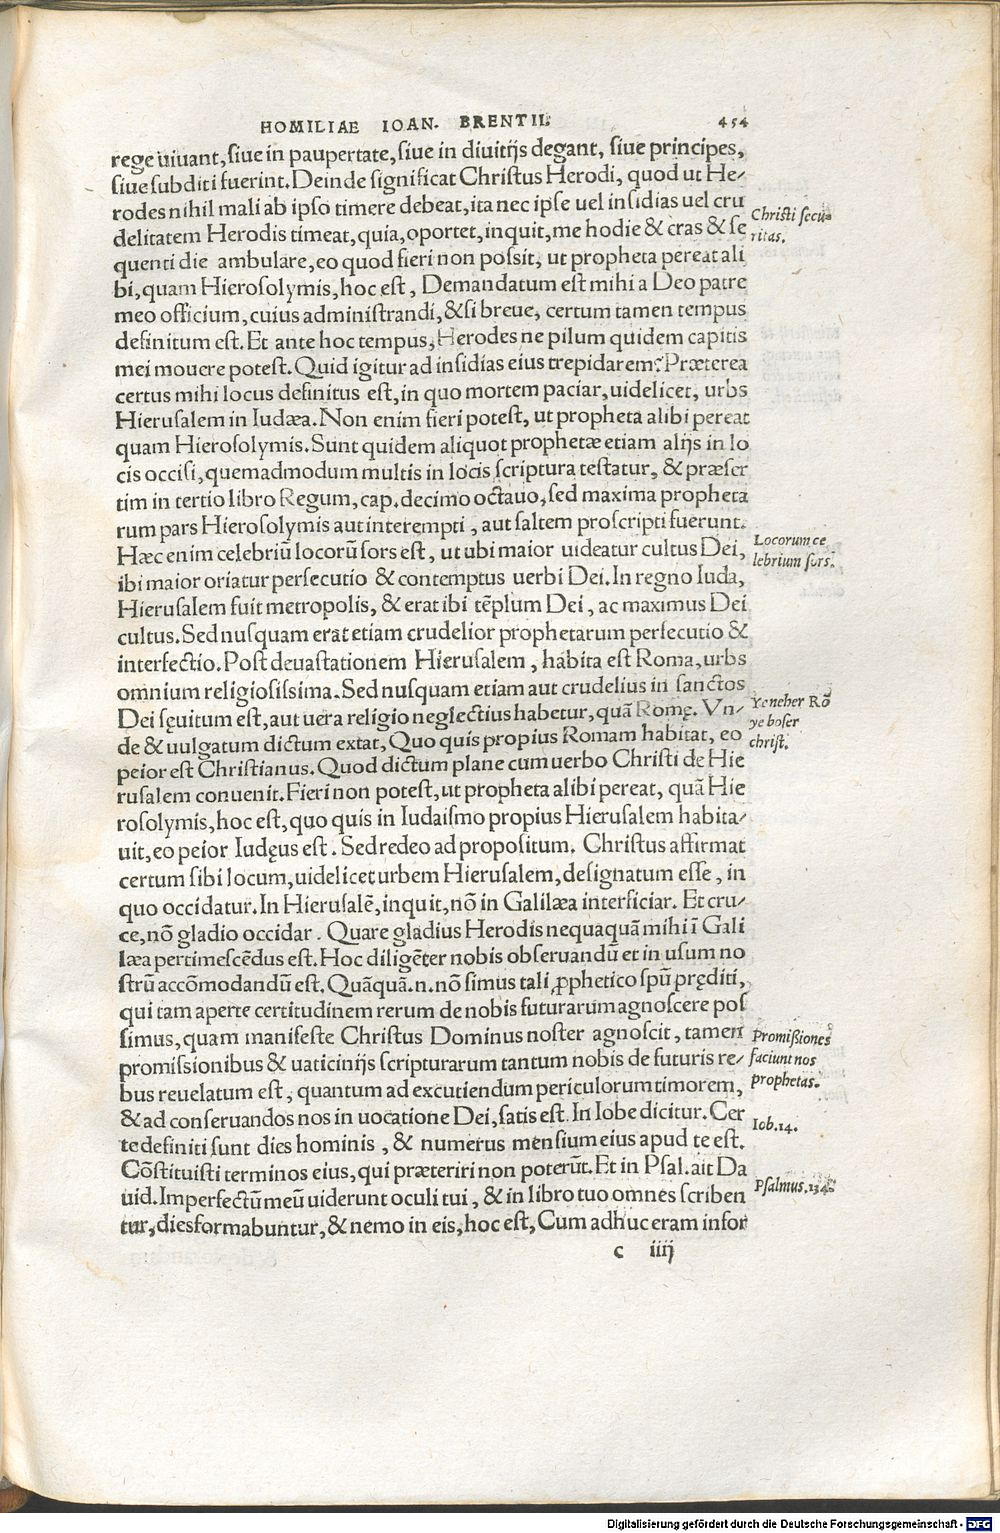 HOMILIAE IOAN. BRENTII. 454
rege uiuant, siue in paupertate, siue in diuitijs degant, siue principes,
siue subditi fuerint. Deinde significat Christus Herodi, quod ut He-
rodes nihil mali ab ipso timere debeat, ita nec ipse uel insidias uel cru
delitatem Herodis timeat, quia, oportet, inquit, me hodie & cras & se
quenti die ambulare, eo quod fieri non possit, ut propheta pereat ali
bi, quam Hierosolymis, hoc est, Demandatum est mihi a Deo patre
meo officium, cuius administrandi, & si breue, certum tamen tempus
definitum est. Et ante hoc tempus, Herodes ne pilum quidem capitis
mei mouere potest. Quid igitur ad insidias eius trepidarem? Præterea
certus mihi locus definitus est, in quo mortem paciar, uidelicet, urbs
Hierusalem in Iudæa. Non enim fieri potest, ut propheta alibi pereat
quam Hierosolymis. Sunt quidem aliquot prophetæ etiam alijs in lo
cis occisi, quemadmodum multis in locis scriptura testatur, & præser
tim in tertio libro Regum, cap. decimo octauo, sed maxima propheta
rum pars Hierosolymis aut interempti, aut saltem proscripti fuerunt.
Hæc enim celebriũ locorũ sors est, ut ubi maior uideatur cultus Dei,
ibi maior oriatur persecutio & contemptus uerbi Dei. In regno Iuda,
Hierusalem fuit metropolis, & erat ibi tẽplum Dei, ac maximus Dei
cultus. Sed nusquam erat etiam crudelior prophetarum persecutio &
interfectio. Post deuastationem Hierusalem, habita est Roma, urbs
omnium religiosissima. Sed nusquam etiam aut crudelius in sanctos
Dei sęuitum est, aut uera religio neglectius habetur, quã Romę. Vn-
de & uulgatum dictum extat, Quo quis propius Romam habitat, eo
peior est Christianus. Quod dictum plane cum uerbo Christi de Hie
rusalem conuenit. Fieri non potest, ut propheta alibi pereat, quã Hie
rosolymis, hoc est, quo quis in Iudaismo propius Hierusalem habita-
uit, eo peior Iudęus est. Sed redeo ad propositum. Christus affirmat
certum sibi locum, uidelicet urbem Hierusalem, designatum esse, in
quo occidatur. In Hierusalẽ, inquit, nõ in Galilæa interficiar. Et cru-
ce, nõ gladio occidar. Quare gladius Herodis nequaquã mihi ĩ Gali
læa pertimescẽdus est. Hoc diligẽter nobis obseruandũ et in usum no
strũ accõmodandũ est. Quãquã.n. nõ simus tali ꝓphetico spũ pręditi,
qui tam aperte certitudinem rerum de nobis futurarum agnoscere pos
simus, quam manifeste Christus Dominus noster agnoscit, tamen
promissionibus & uaticinijs scripturarum tantum nobis de futuris re-
bus reuelatum est, quantum ad excutiendum periculorum timorem,
& ad conseruandos nos in uocatione Dei, satis est. In Iobe dicitur. Cer
te definiti sunt dies hominis, & numerus mensium eius apud te est.
Cõstituisti terminos eius, qui præteriri non poterũt. Et in Psal. ait Da
uid. Imperfectũ meũ uiderunt oculi tui, & in libro tuo omnes scriben
tur, dies formabuntur, & nemo in eis, hoc est, Cum adhuc eram infor
c iiij
Christi secu-
ritas.
Locorum ce
lebrium sors.
Ye neher Rõ
ye boser
christ.
Promißiones
faciunt nos
prophetas.
Iob. 14.
Psalmus.
Digitalisierung gefördert durch die Deutsche Forschungsgemeinschaft - DFG